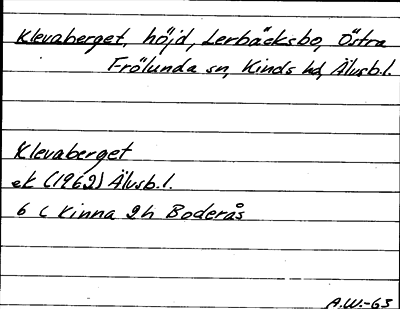 Klevaberget, höjd, Lerbäcksbo, Östra
Frölunda sn, Kinds hd, Älvsb.l.
Klevaberget
ek (1962) Älvsb.l.
6 C Kinna 2h Boderås
A.W.-63